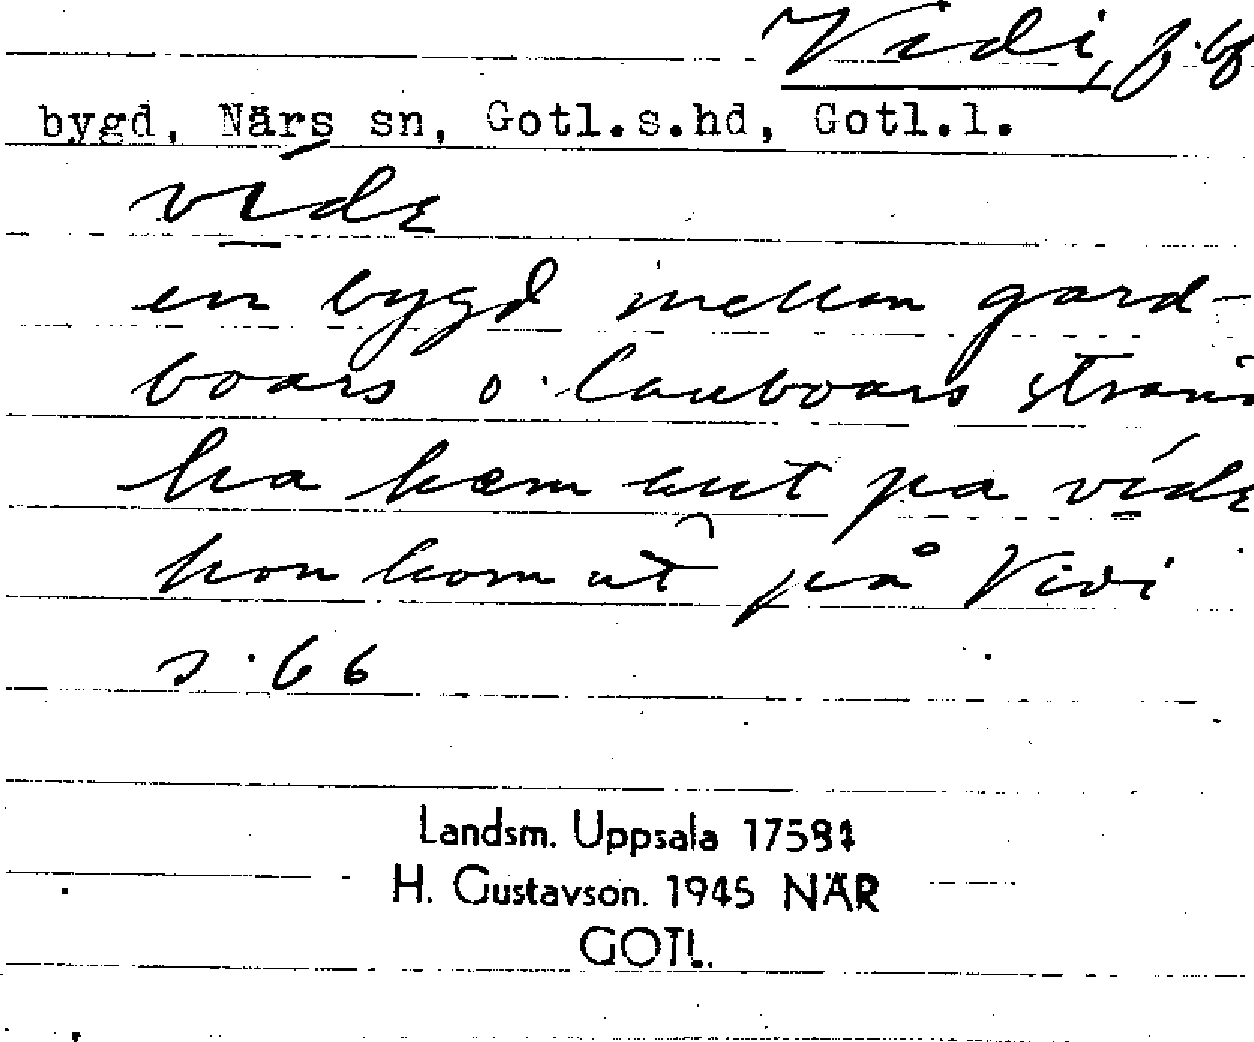 Vidi, f. bf
bygd, Närs sn, Gotl.s.hd, Gotl.l.
víde
en bygd mellan gard-
boars o. lauboars
ha kæm aut pa víde
hon kom ut på Vidi
s. 66
Landsm. Uppsala
H. Gustavson. 1945 NÄR
GOTL.